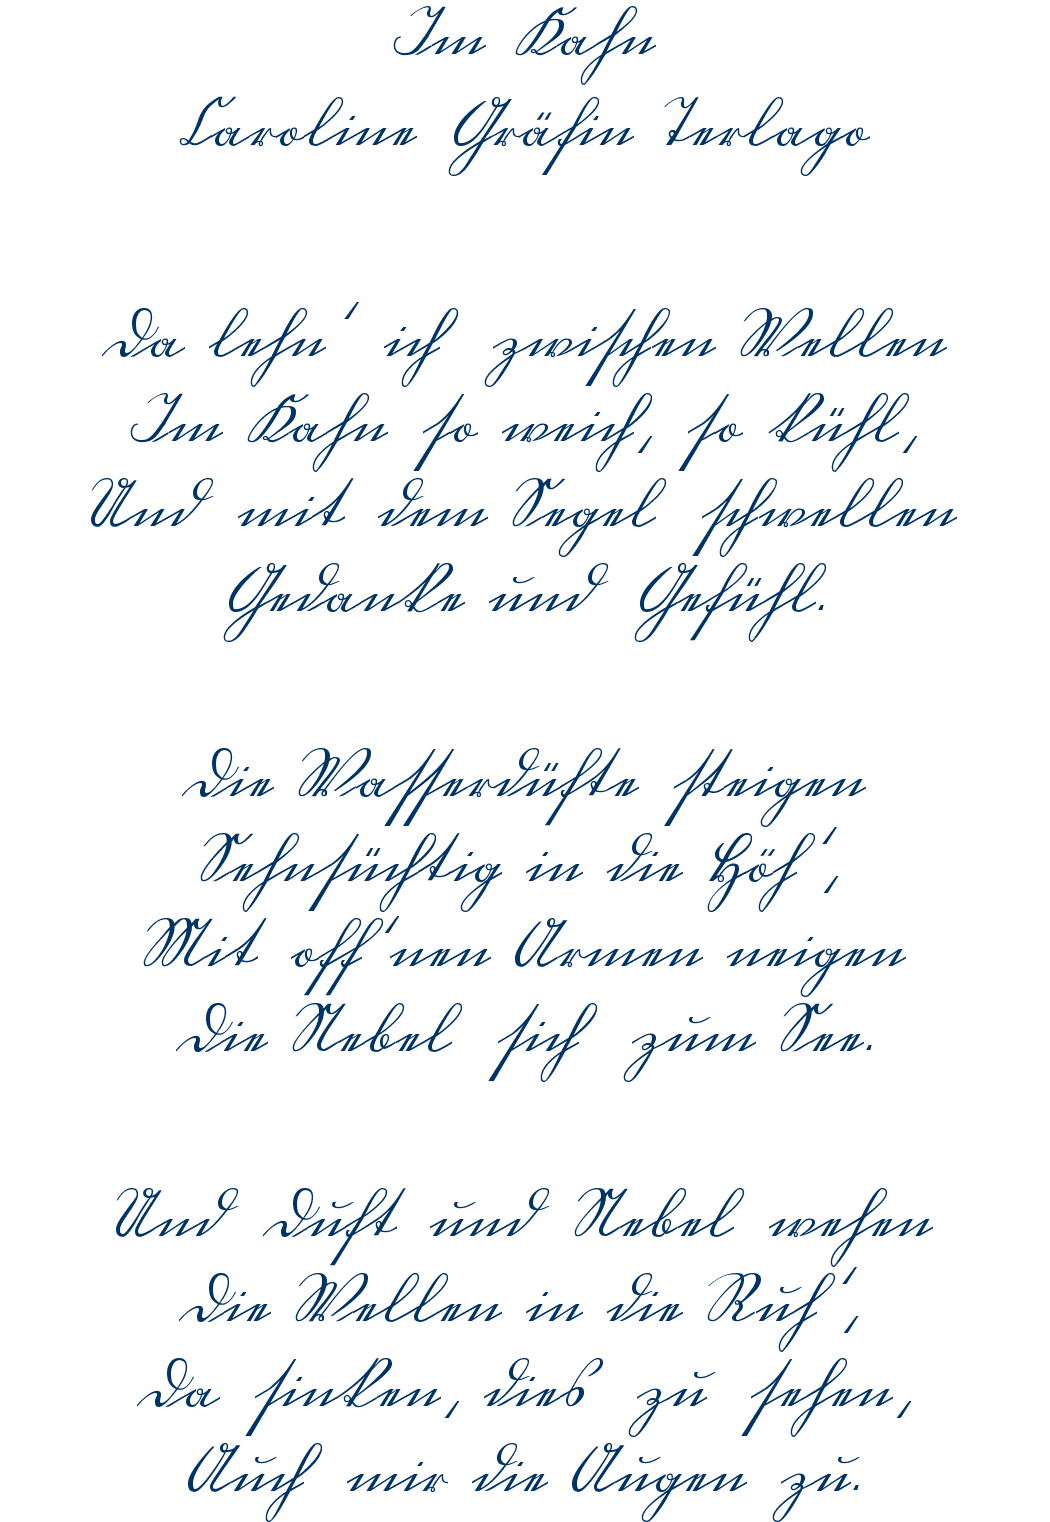 Im Kahn
Caroline Gräfin Terlago
Da lehn' ich zwischen Wellen
Im Kahn so weich, so kühl,
Und mit dem Segel schwellen
Gedanke und Gefühl.
Die Wasserdüfte steigen
Sehnsüchtig in die Höh',
Mit off'nen Armen neigen
Die Nebel sich zum See.
Und Duft und Nebel wehen
Die Wellen in die Ruh',
Da sinken, dies zu sehen,
Auch mir die Augen zu.